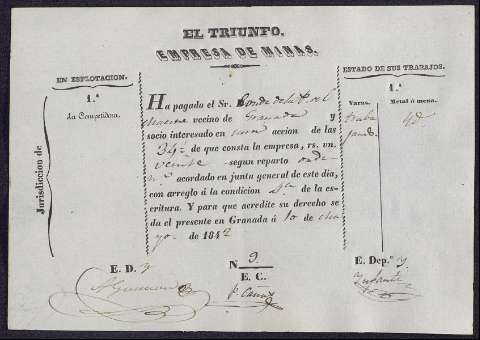 EL TRIUNFO.
EMPRESA DE MINAS.
EN ESPLOTACION.
1.ª
La Competidora.
Jurisdiccion de
Ha pagado el Sr. Conde de la
vecino de Granada y
socio interesado en una accion de las
34½ de que consta la empresa, rs. vn.
veinte segun reparto onde-
n.º acordado en junta general de este dia,
con arreglo á la condicion 4ª de la es-
critura. Y para que acredite su derecho se
da el presente en Granada á 10 de Ma-
yo de 1842
ESTADO DE SUS TRABAJOS.
1.ª
Varas.
Metal ó mena.
E. D.
N 9.
E. C.
E. Dep.º